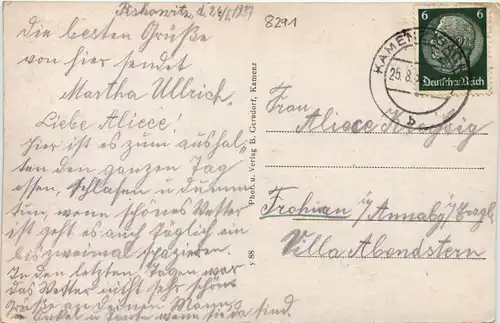 Piskowitz, d. 24/8 1937
8291
Die besten Grüße
von hier sendet
Martha Ullrich.
Liebe Aliece!
hier ist es zum aushal-
ten den ganzen Tag
essen, schlafen u dumm
tun, wenn schönes Wetter
ist geht es auch täglich ein
bis zweimal spazieren.
In den letzten Tagen war
das Wetter nicht sehr schön
Grüße an deinen Mann
Onkel u Tante wenn sie da sind.
Phot. u. Verlag B. Gersdorf, Kamenz
y 88
6 6
Deutsches Reich
KAMENZ (SACHS)
25.8.
b
Frau
Aliece
Frohnau i/ Annabg/Erzgb
Villa Abendstern